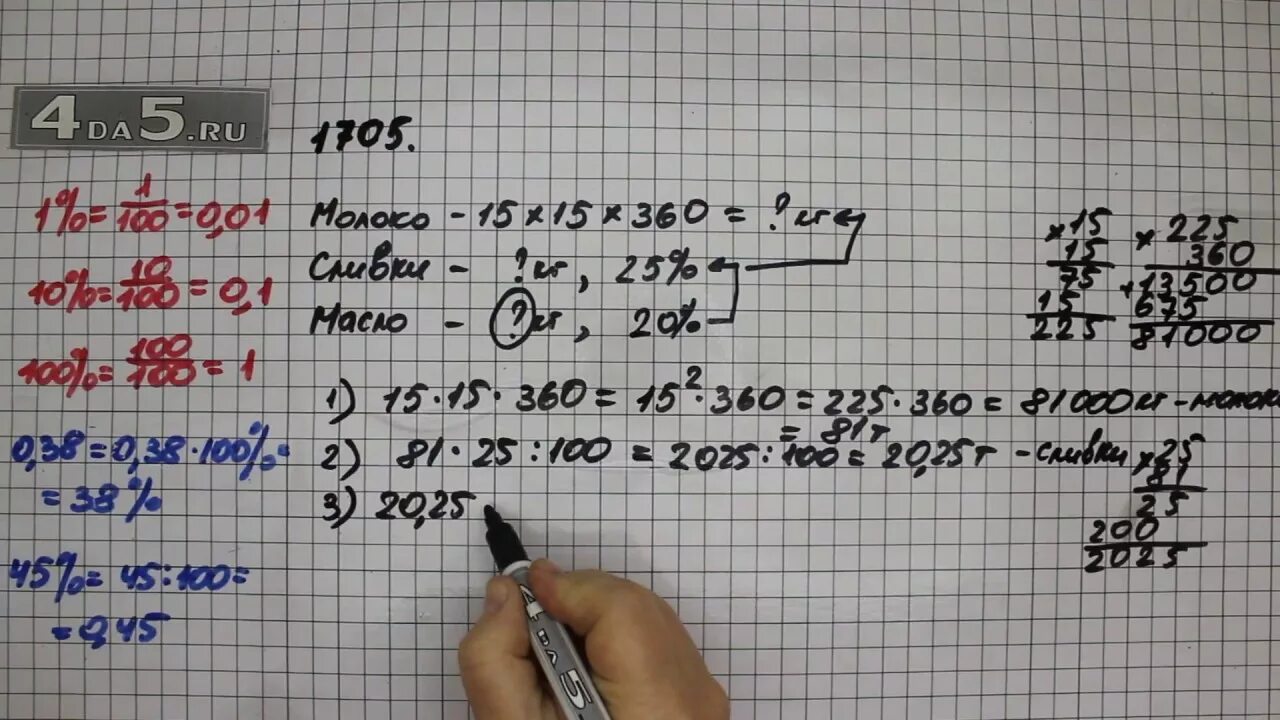 4DA5.RU
1705.
1% = 1/100 = 0,01
10% = 10/100 = 0,1
100% = 100/100 = 1
0,38 = 0,38 · 100% =
= 38%
45% = 45 : 100 =
= 0,45
Молоко - 15 × 15 × 360 = ? кг
Сливки - ? кг, 25%
Масло - ? кг, 20%
1) 15 · 15 · 360 = 15² · 360 = 225 · 360 = 81000 кг - молоко
= 81 т
2) 81 · 25 : 100 = 2025 : 100 = 20,25 т - сливки
3) 20,25
× 15
15
75
15
225
× 225
360
+ 13500
675
81000
× 25
81
25
200
2025
4 DA 5